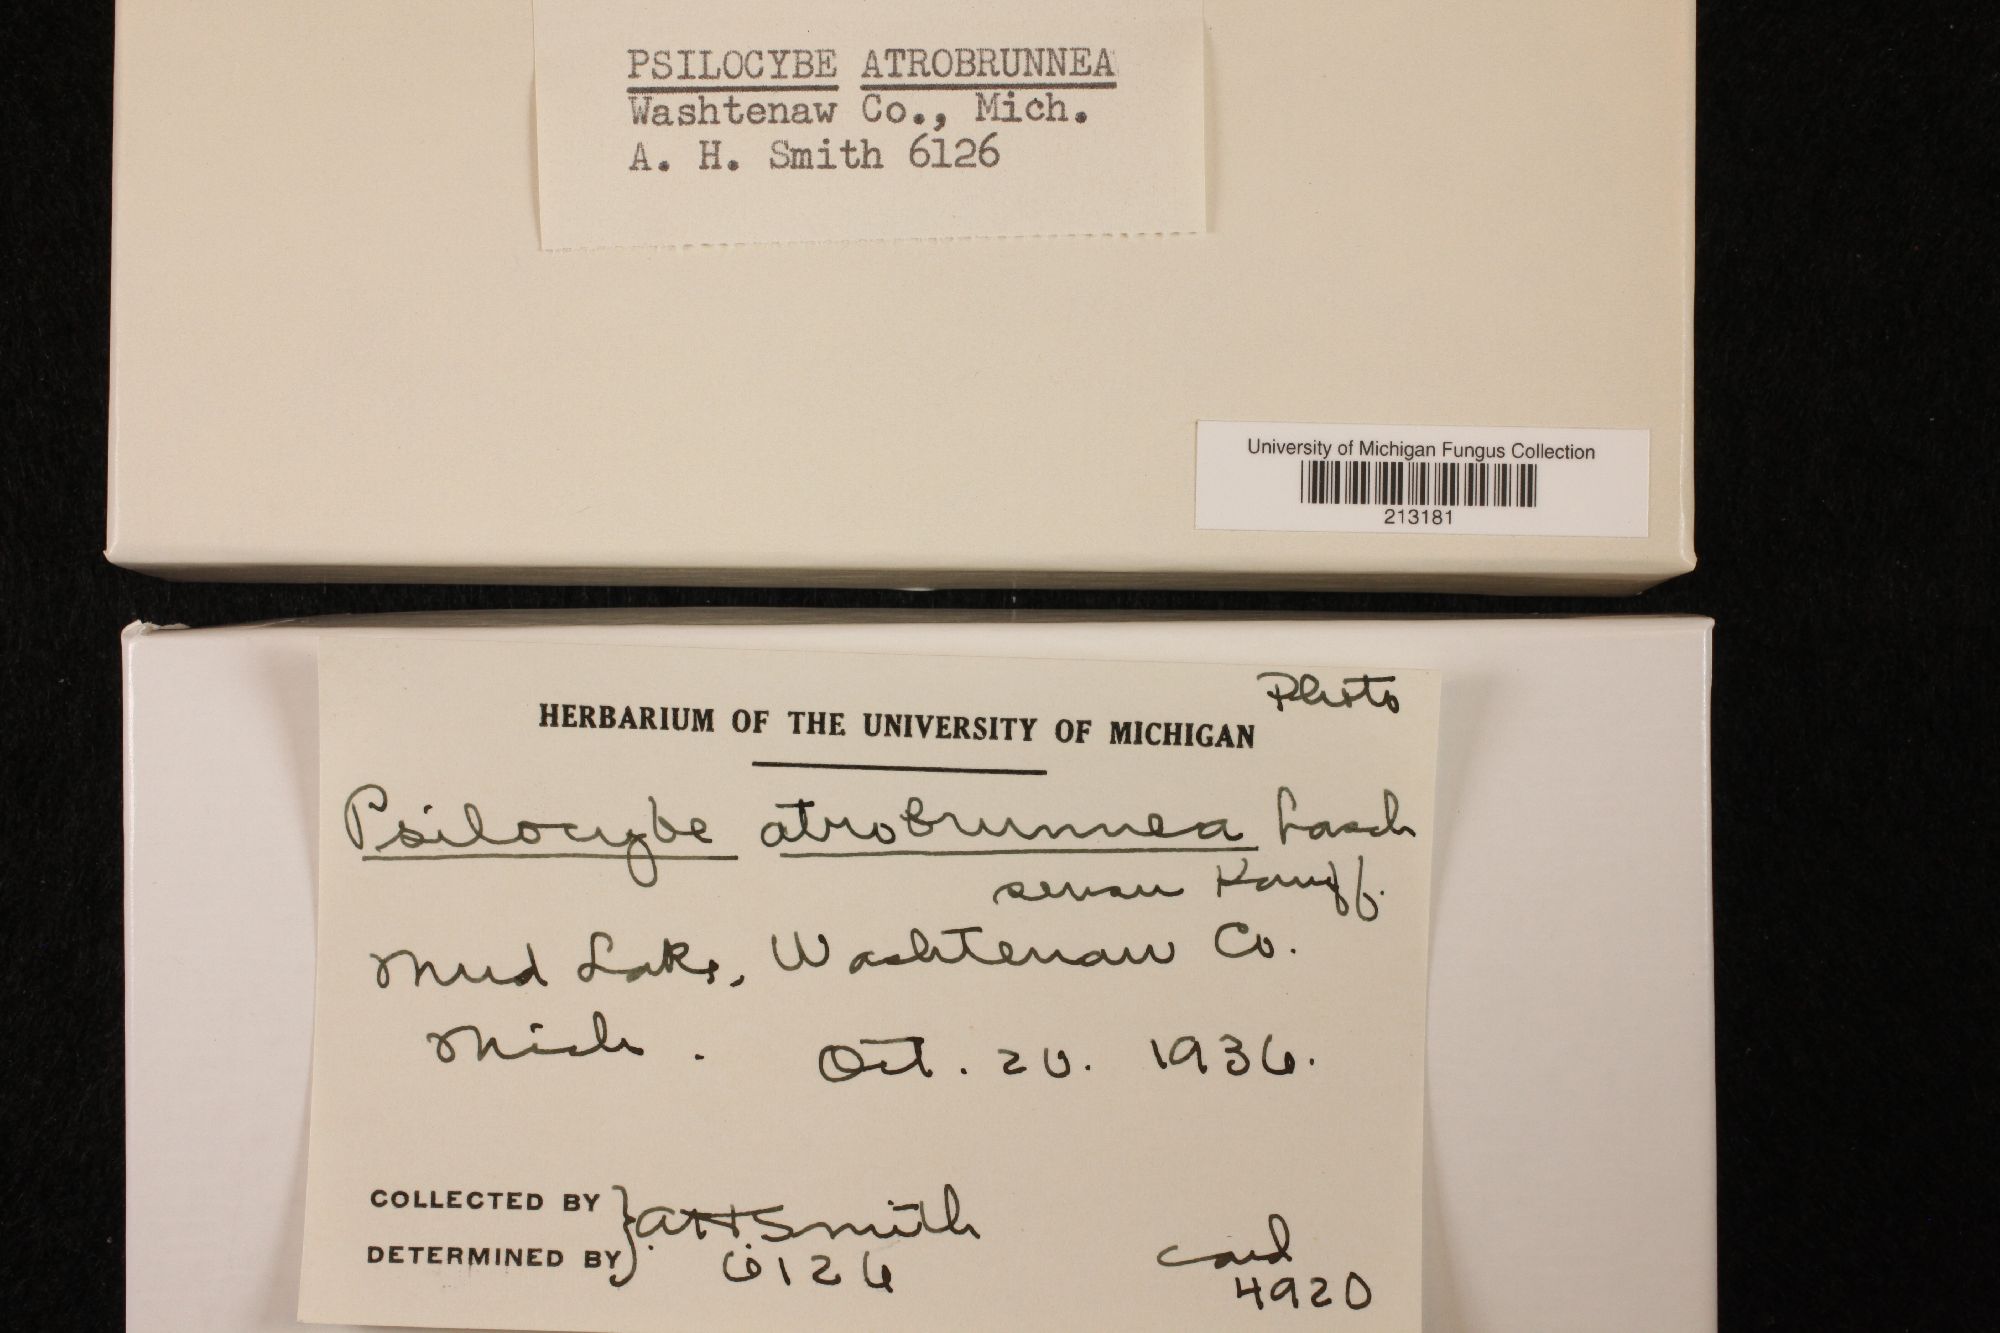 PSILOCYBE ATROBRUNNEA
Washtenaw Co., Mich.
A. H. Smith 6126
University of Michigan Fungus Collection
213181
Photo
HERBARIUM OF THE UNIVERSITY OF MICHIGAN
Psilocybe atrobrunnea Lasch
sensu Kauff.
Mud Lake, Washtenaw Co.
Mich. Oct. 20. 1936.
COLLECTED BY } AHSmith
DETERMINED BY 6126
card
4920